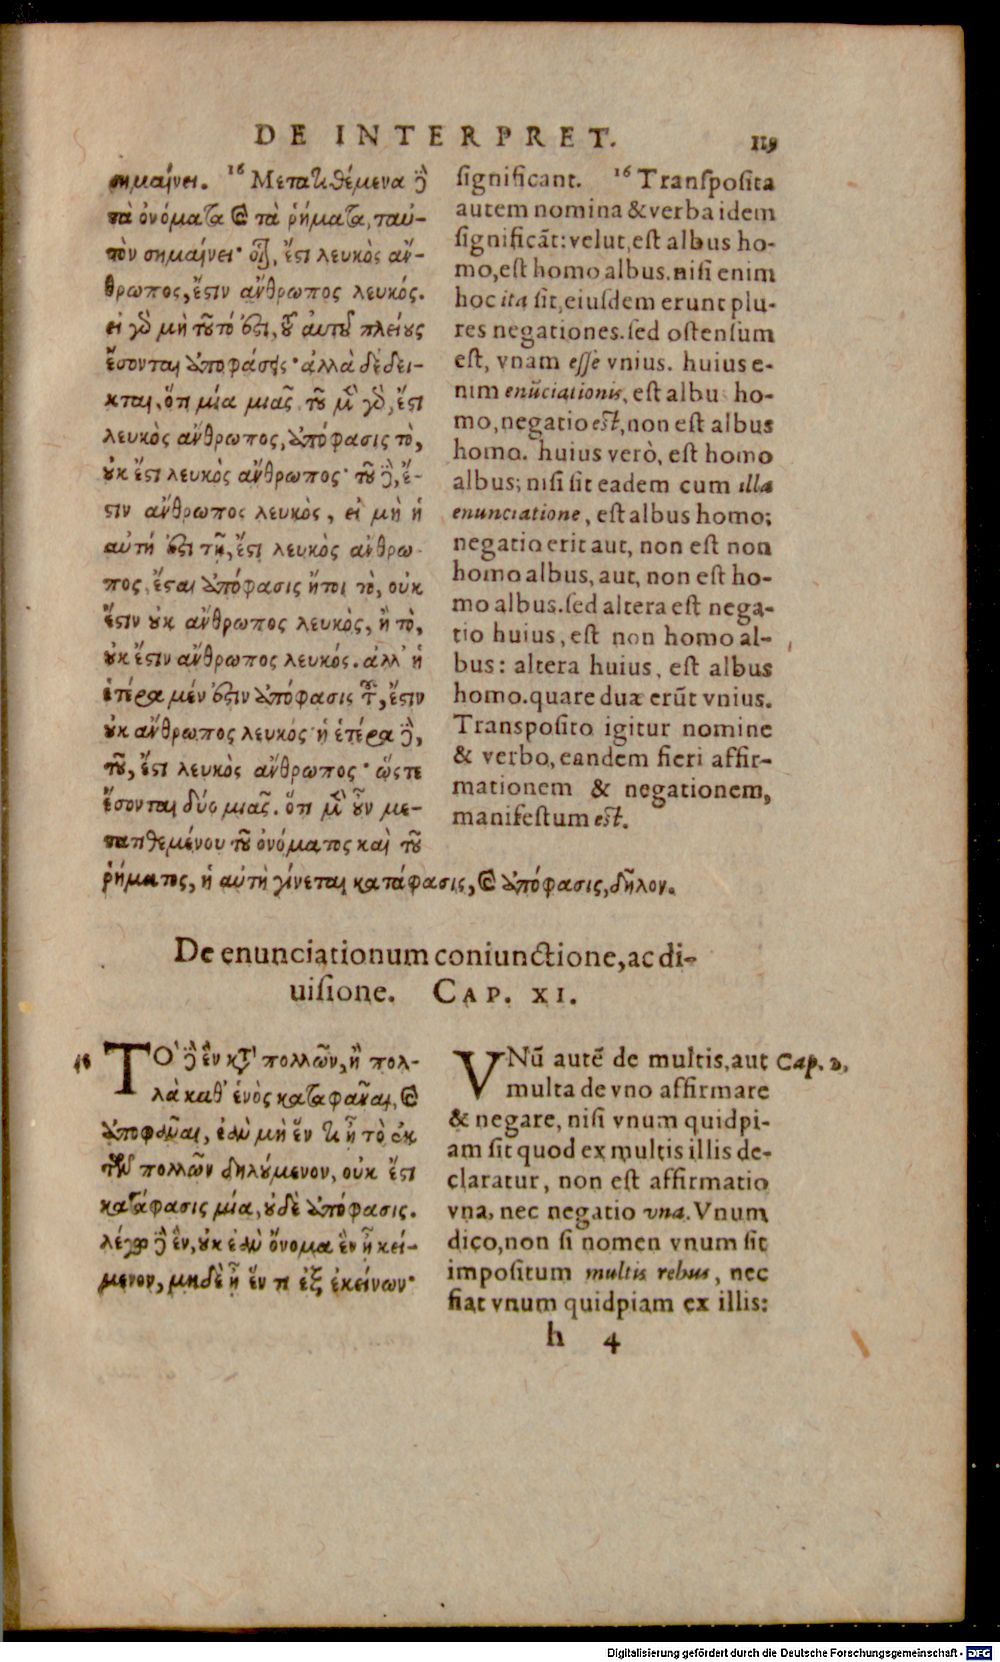 DE INTERPRET. 119
σημαίνει. 16 Μετατιθέμενα δὲ
τὰ ὀνόματα καὶ τὰ ῥήματα, ταὐ-
τὸν σημαίνει· οἷον, ἔστι λευκὸς ἄν-
θρωπος, ἔστιν ἄνθρωπος λευκός.
εἰ γὰρ μὴ τοῦτό ἐστι, τοῦ αὐτοῦ πλείους
ἔσονται ἀποφάσεις· ἀλλὰ δέδει-
κται, ὅτι μία μιᾶς. τοῦ μὲν γὰρ, ἔστι
λευκὸς ἄνθρωπος, ἀπόφασις τὸ,
οὐκ ἔστι λευκὸς ἄνθρωπος· τοῦ δὲ, ἔ-
στιν ἄνθρωπος λευκὸς, εἰ μὴ ἡ
αὐτή ἐστι τῇ, ἔστι λευκὸς ἄνθρω-
πος, ἔσται ἀπόφασις ἤτοι τὸ, οὐκ
ἔστιν οὐκ ἄνθρωπος λευκὸς, ἢ τὸ,
οὐκ ἔστιν ἄνθρωπος λευκός. ἀλλ' ἡ
ἑτέρα μέν ἐστιν ἀπόφασις τοῦ, ἔστιν
οὐκ ἄνθρωπος λευκός· ἡ ἑτέρα δὲ,
τοῦ, ἔστι λευκὸς ἄνθρωπος· ὥστε
ἔσονται δύο μιᾶς. ὅτι μὲν οὖν με-
τατιθεμένου τοῦ ὀνόματος καὶ τοῦ
ῥήματος, ἡ αὐτὴ γίνεται κατάφασις, καὶ ἀπόφασις, δῆλον.
significant. 16 Transposita
autem nomina & verba idem
significāt: velut, est albus ho-
mo, est homo albus. nisi enim
hoc ita sit, eiusdem erunt plu-
res negationes. sed ostensum
est, vnam esse vnius. huius e-
nim enūciationis, est albu ho-
mo, negatio est, non est albus
homo. huius verò, est homo
albus; nisi sit eadem cum illa
enunciatione, est albus homo;
negatio erit aut, non est non
homo albus, aut, non est ho-
mo albus. sed altera est nega-
tio huius, est non homo al-
bus: altera huius, est albus
homo. quare duæ erūt vnius.
Transposito igitur nomine
& verbo, eandem fieri affir-
mationem & negationem,
manifestum est.
De enunciationum coniunctione, ac di-
uisione. CAP. XI.
ΤΟ δὲ ἓν κατὰ πολλῶν, ἢ πολ-
λὰ καθ' ἑνὸς καταφάναι, καὶ
ἀποφάναι, ἐὰν μὴ ἕν τι ᾖ τὸ ἐκ
τῶν πολλῶν δηλούμενον, οὐκ ἔστι
κατάφασις μία, οὐδὲ ἀπόφασις.
λέγω δὲ ἓν, οὐκ ἐὰν ὄνομα ἓν ᾖ κεί-
μενον, μηδὲ ᾖ ἕν τι ἐξ ἐκείνων·
VNū autē de multis, aut Cap. 2,
multa de vno affirmare
& negare, nisi vnum quidpi-
am sit quod ex multis illis de-
claratur, non est affirmatio
vna, nec negatio vna. Vnum
dico, non si nomen vnum sit
impositum multis rebus, nec
fiat vnum quidpiam ex illis:
h 4
Digitalisierung gefördert durch die Deutsche Forschungsgemeinschaft - DFG